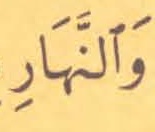 وَٱلنَّهَارِ